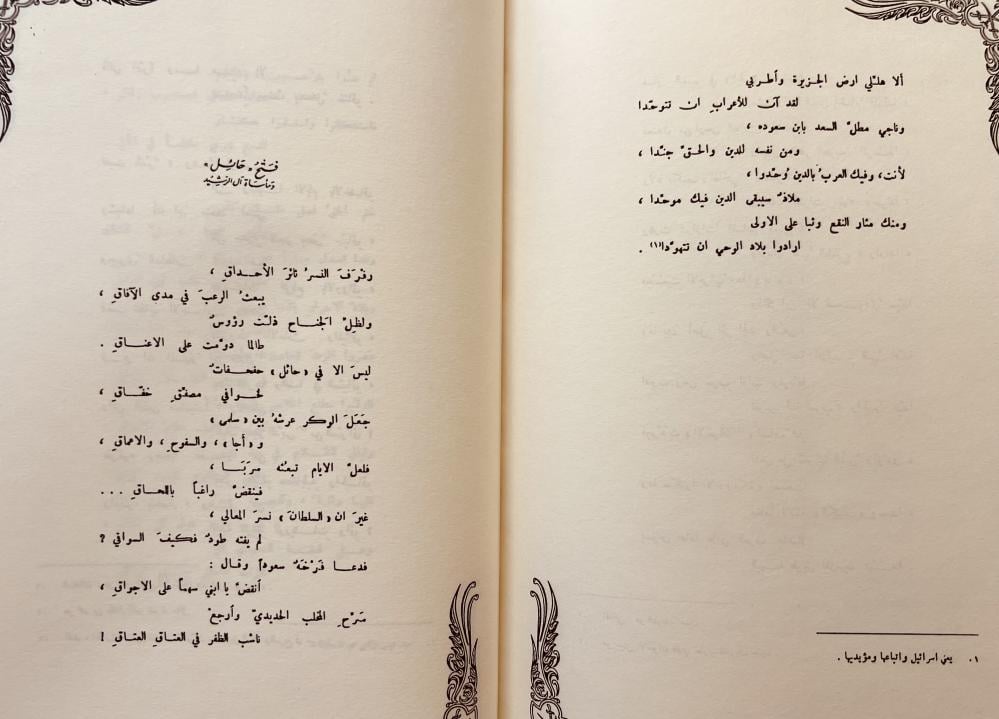 ألا هلّلي ارض الجزيرة وأطربي
لقد آن للأعرابِ ان تتوحّدا
وناجي مطلّ السعد بابن سعوده ،
ومن نفسه للدين والحقّ جنّدا ،
لأنت، وفيك العربُ بالدين وُحّدوا ،
ملاذٌ سيبقى الدين فيك موحّدا ،
ومنك مثار النقع وثبا على الاولى
ارادوا بلاد الوحي ان تتهوّدا(١) .
١. يعني اسرائيل واتباعها ومؤيديها .
فتحُ «حائل»
ومأساة آل الرشيد
رفرَفَ النسرُ ثائرَ الأحداقِ ،
يبعثُ الرعبَ في مدى الآفاقِ ،
ولظِلِّ الجَناح ذلّت رؤوسٌ
طالما دوّمت على الاعناقِ .
ليسَ الا في «حائل» حفحفاتٌ
لخوافي مصفّقٍ خفّاقِ ،
جَعَلَ الوكر عرشهُ بين «سلمى»
و«أجا» ، والسفوحِ ، والاعماقِ ،
فلعلّ الايام تبعثه سربَا ،
فينقضّ راغباً باللحاقِ ...
غيرَ ان «السلطانَ» نسرَ المعالي ،
لم يفته طودٌ فكيفَ السواقي ؟
فدعا فَرْخَهُ سعوداً وقال :
أنقضَّ يا ابني سهماً على الاجواقِ ،
سَرِّحِ المخلب الحديديّ وأرجعْ
ناشب الظفر في العتاقِ العتاقِ !